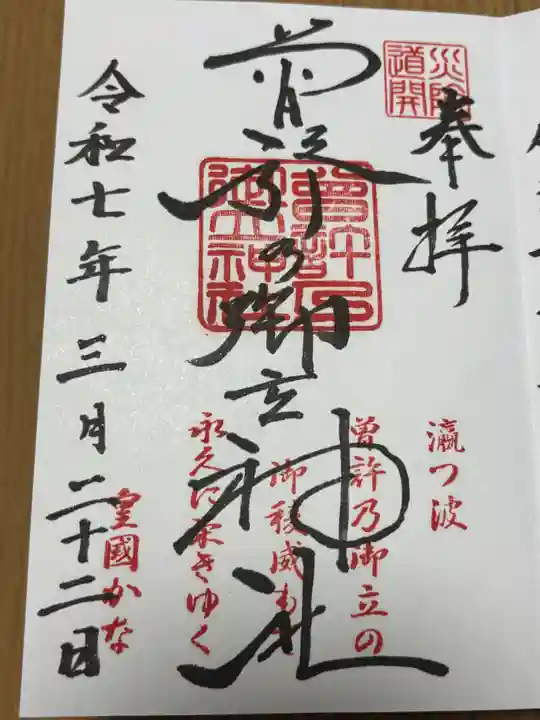 奉拝
災除
道開
曽許乃御立神社
瀛つ波
曽許乃御立の
御稜威もて
永久に栄きゆく
皇國かな
令和七年三月二十二日